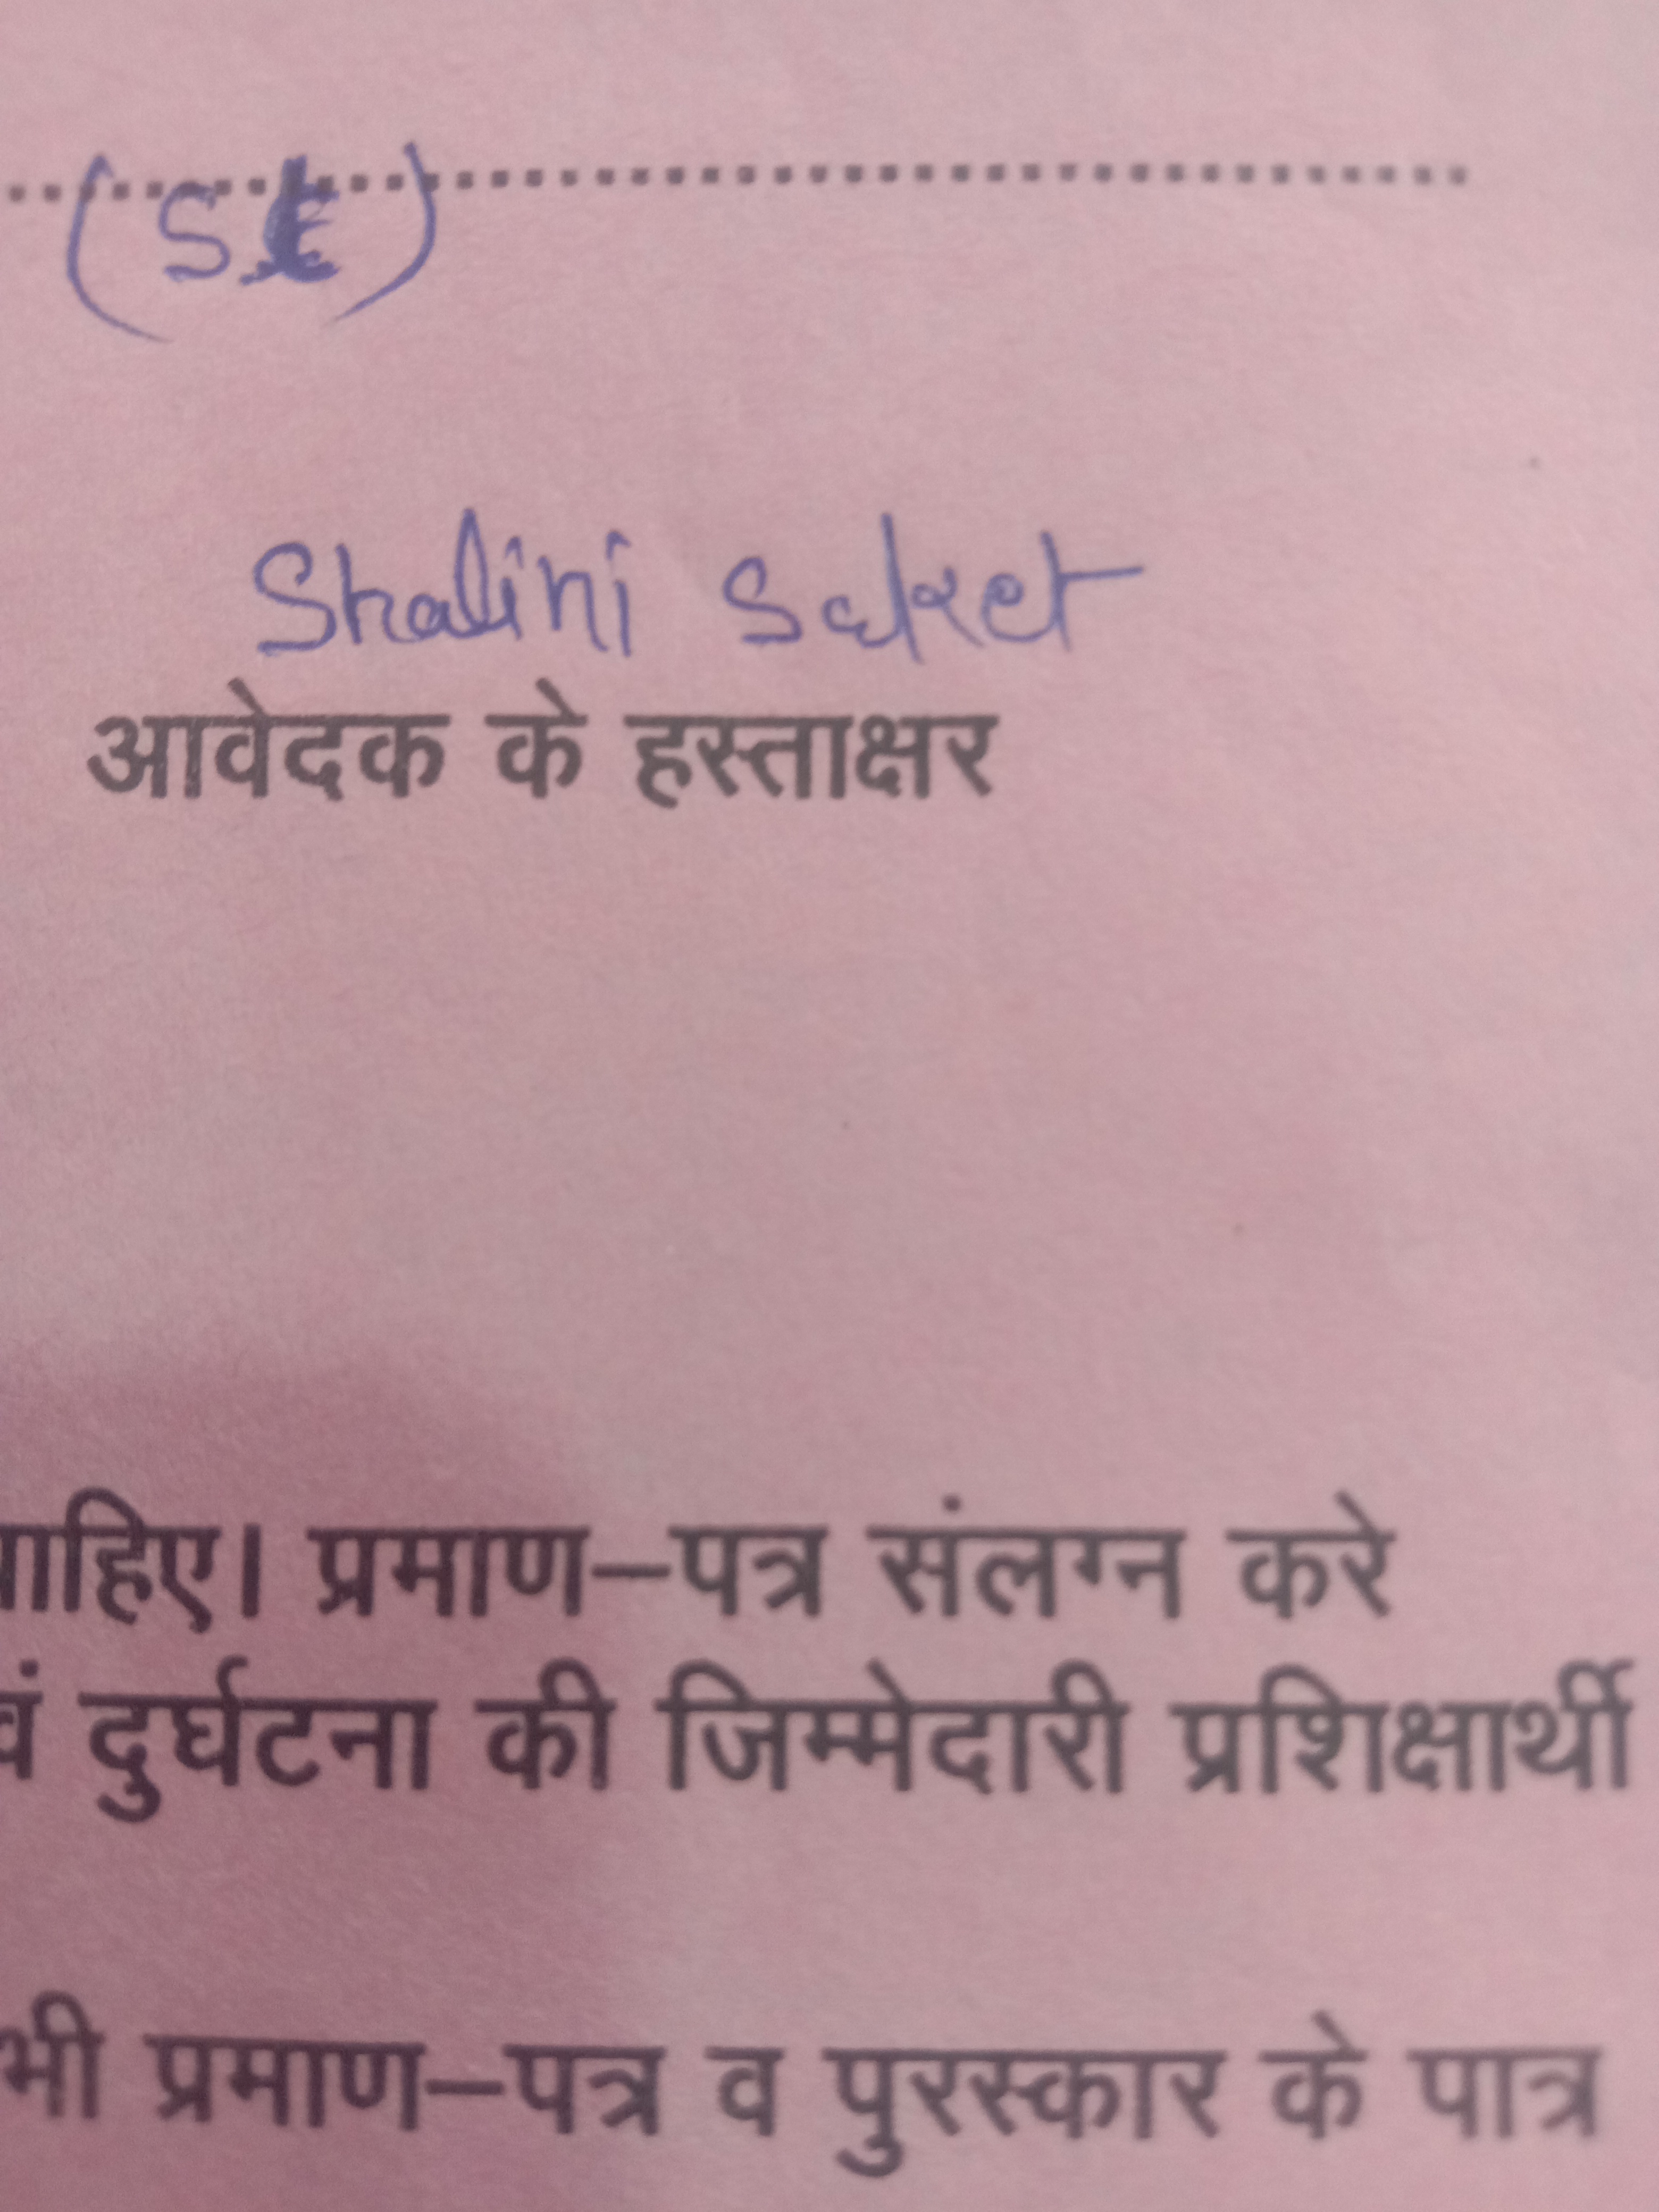 (SC)
Shalini Saket
आवेदक के हस्ताक्षर
ाहिए। प्रमाण–पत्र संलग्न करे
वं दुर्घटना की जिम्मेदारी प्रशिक्षार्थी
भी प्रमाण–पत्र व पुरस्कार के पात्र